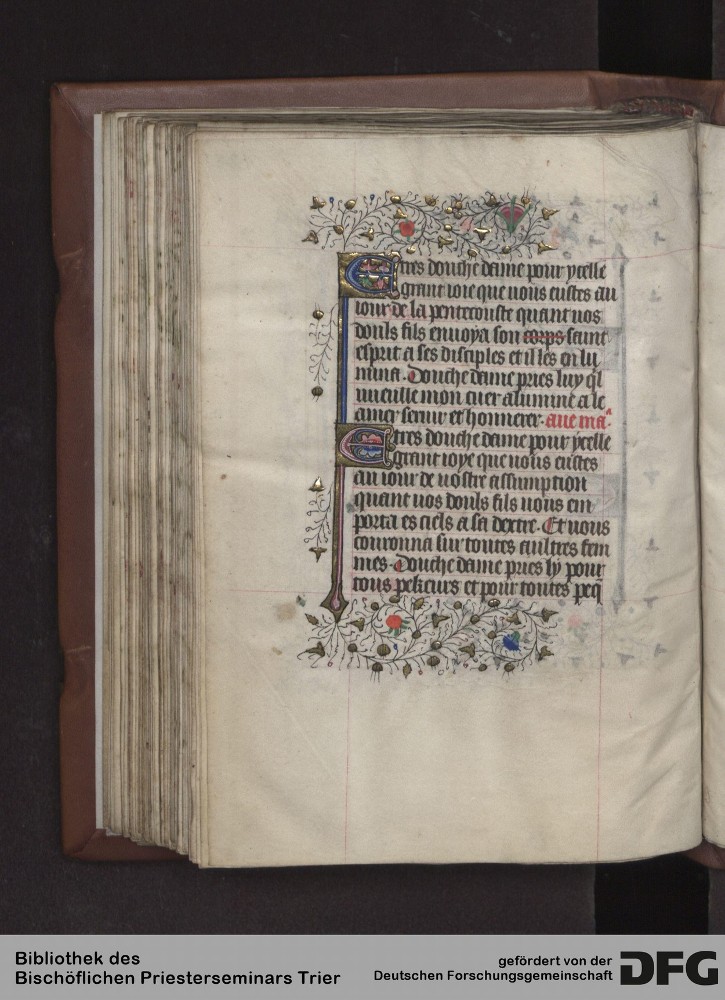 Etres douche dame pour ycelle
grant ioie que uous eustes au
iour de la penteconste quant uos
douls fils enuoya son corps saint
esprit a ses disciples et il les enlu
mina. Douche dame pries luy ql
uueille mon cuer alumine a le
amer seruir et honnerer. aue maᵃ.
Etres douche dame pour ycelle
grant ioye que uous eustes
au iour de uostre assumption
quant uos douls fils uous em
porta es ciels a sa dextre. Et uous
couronna sur toutes aultres fem
mes. Douche dame pries ly pour
tous pekeurs et pour toutes peq̄
Bibliothek des
Bischöflichen Priesterseminars Trier
gefördert von der
Deutschen Forschungsgemeinschaft
DFG